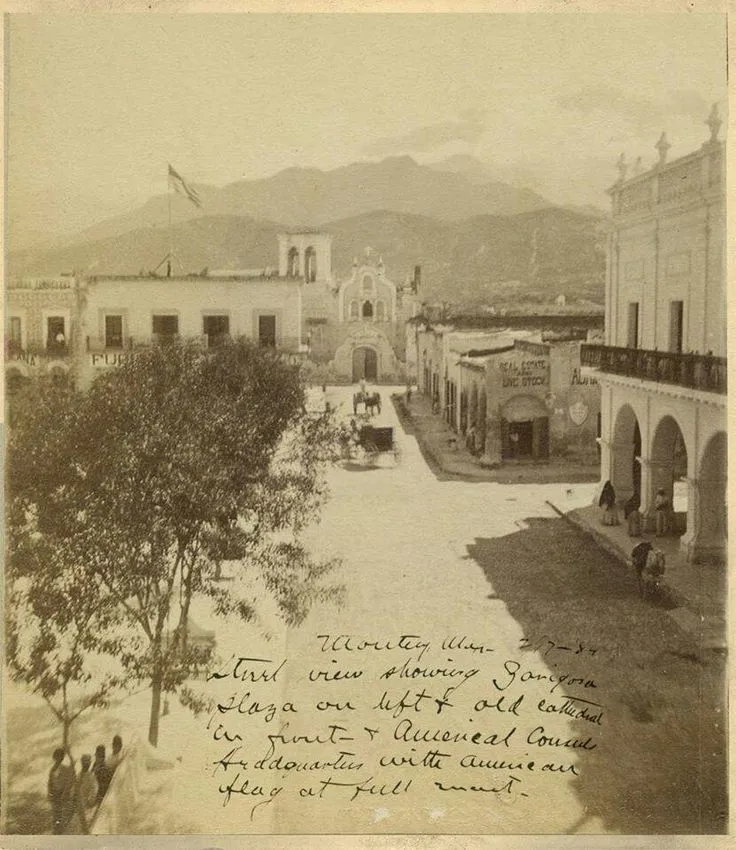 REAL ESTATE
AND
LIVE STOCK
Street view showing Zarigosa
plaza on left & old cathedral
in front & Americal Consul
Headquarters with american
flag at full mast.